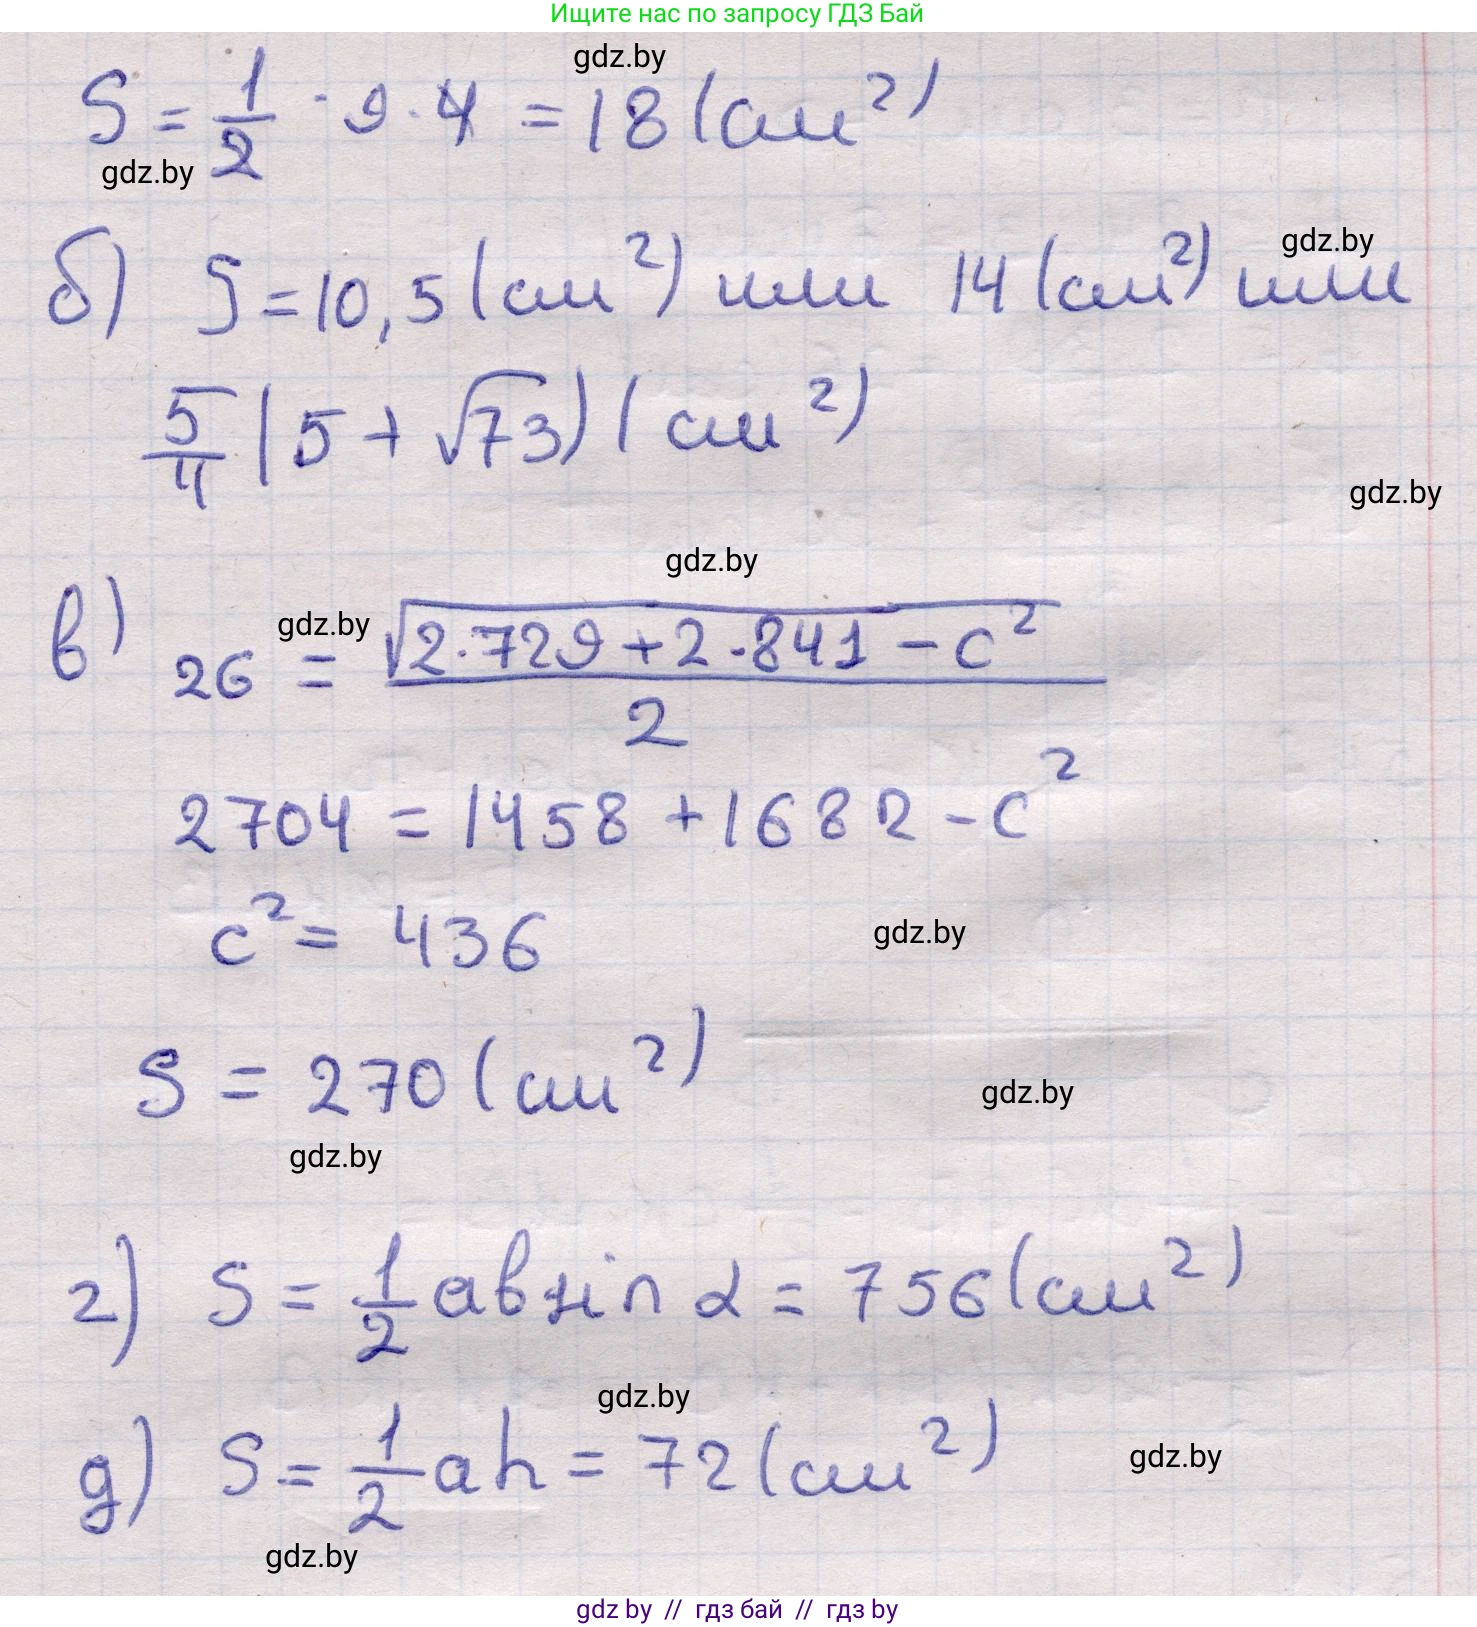 Ищите нас по запросу ГДЗ Бай
gdz.by
S = 1/2 · 9 · 4 = 18 (см²)
gdz.by
gdz.by
б) S = 10,5 (см²) или 14 (см²) или
5/4 (5 + √73) (см²)
gdz.by
gdz.by
gdz.by
в) 26 = √(2·729 + 2·841 - c²) / 2
2704 = 1458 + 1682 - c²
c² = 436
gdz.by
S = 270 (см²)
gdz.by
gdz.by
г) S = 1/2 ab sin α = 756 (см²)
gdz.by
д) S = 1/2 ah = 72 (см²)
gdz.by
gdz.by
gdz by // гдз бай // гдз by